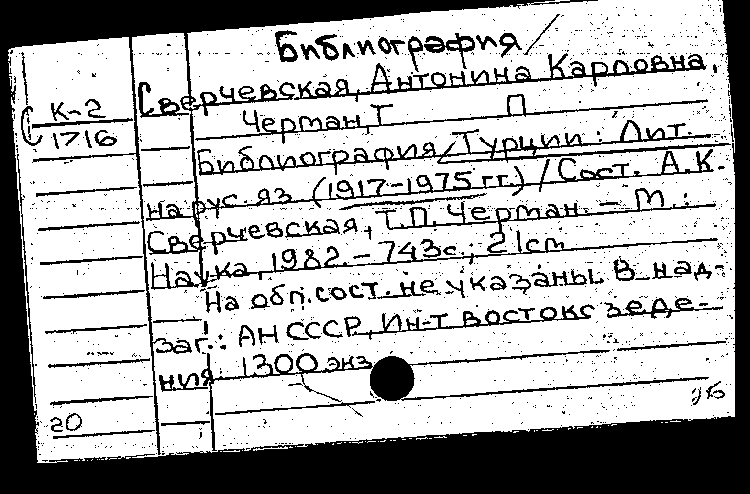 Библиография/
Сверчевская, Антонина Карловна.
К-2
1716
Черман, Т П
Библиография/Турции: Лит.
на рус. яз (1917-1975 гг.) / Сост. А.К.
Сверчевская, Т.П. Черман. - М.:
Наука, 1982. - 743с.; 21cm
На обл. сост. не указаны. В над-
заг.: АН СССР, Ин-т востоковеде-
ния 1300 экз
20